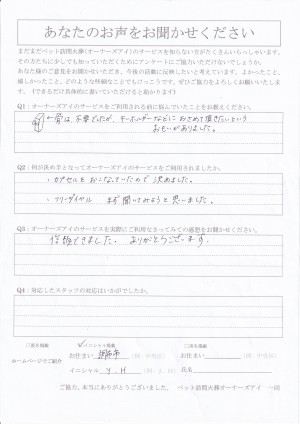 あなたのお声をお聞かせください
まだまだペット訪問火葬(オーナーズアイ)のサービスを知らない方がたくさんいらっしゃいます。
その方たちに少しでも知っていただくためにアンケートにご協力いただけないでしょうか。
あなた様のご意見をお聞かせいただき、今後の活動に反映したいと考えています。よかったこと、
嬉しかったこと、どのような些細なことでもけっこうです。ぜひご協力をよろしくお願いいたします。
(できるだけ具体的に書いていただけると助かります)
Q1:オーナーズアイのサービスをご利用される前に悩んでいたことをお教えください。
骨は、不要でしたが、キーホルダーなどにおさめて頂きたいという
おもいがありました。
Q2:何が決め手となってオーナーズアイのサービスをご利用されましたか。
・カプセルをおこなっていたので決めました。
・フリーダイヤル まず聞いてみようと思いました。
Q3:オーナーズアイのサービスを実際にご利用なさってみての感想をお聞かせください。
信頼できました。ありがとうございます。
Q4:対応したスタッフの対応はいかがでしたか。
ホームページでご紹介
□イニシャル掲載
お住まい 調布市
イニシャル Y.H
□実名掲載
お住まい
氏名
ご協力、本当にありがとうございました。 ペット訪問火葬オーナーズアイ 一同